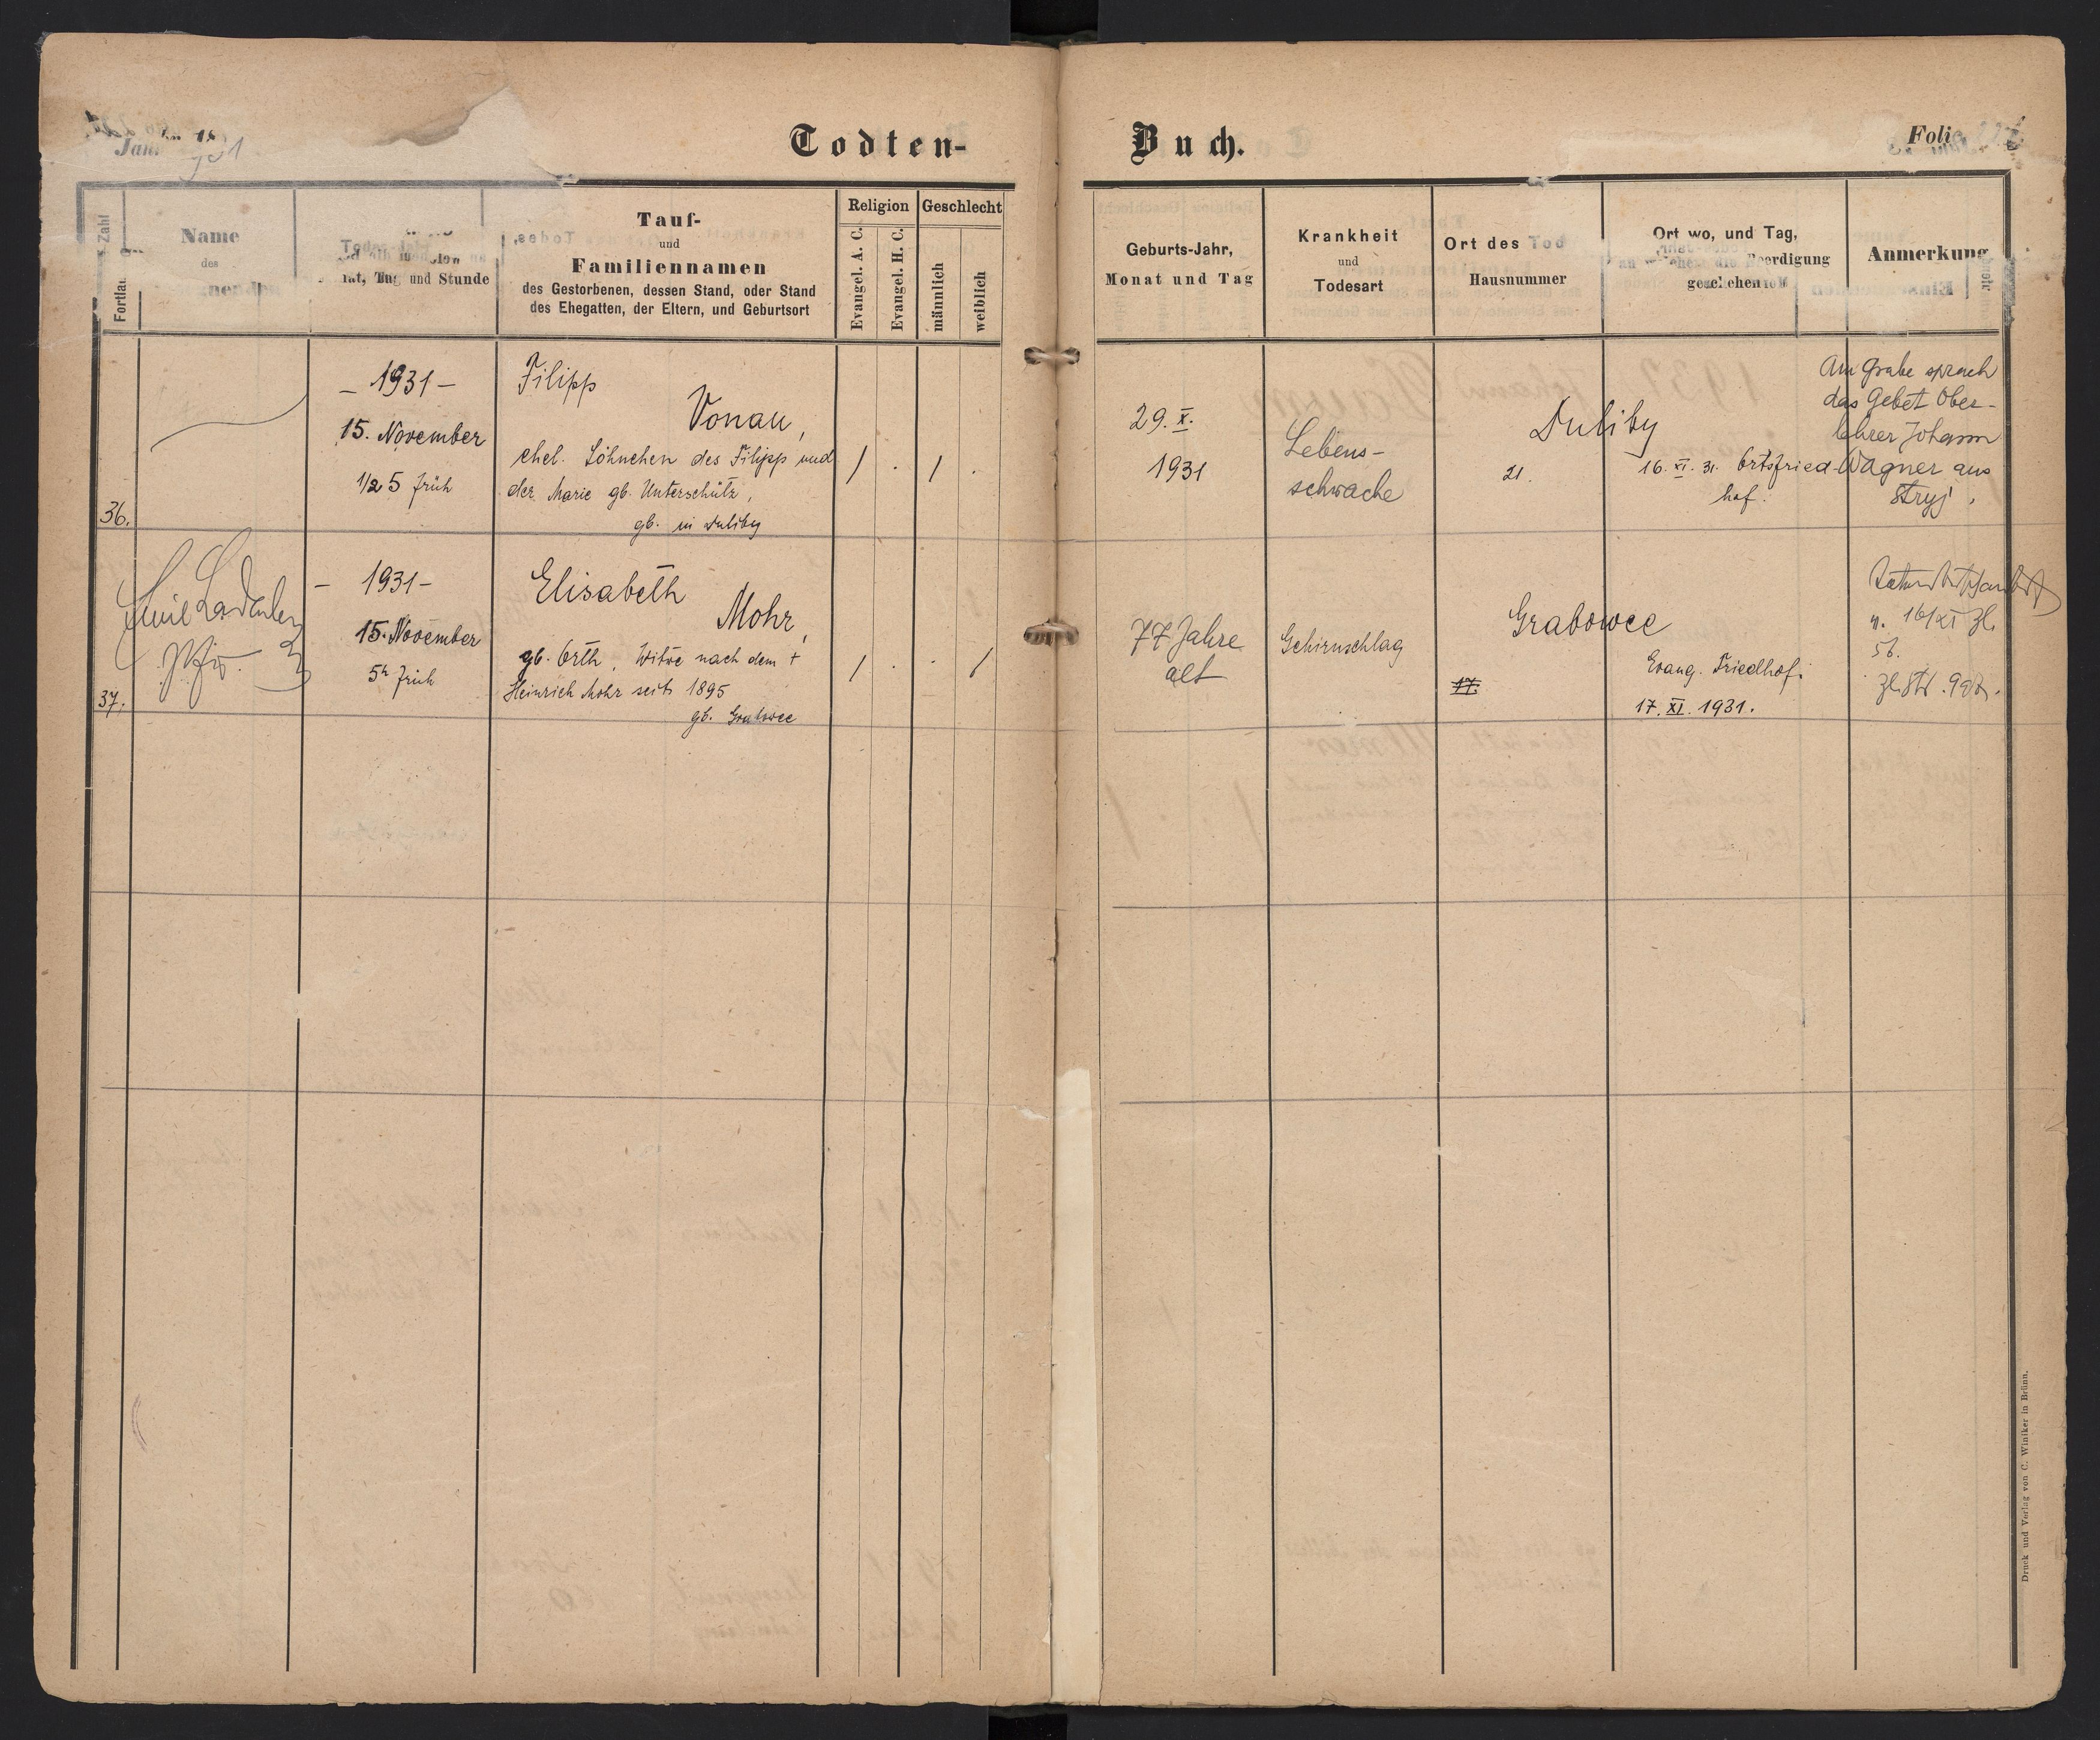 Todten-
Buch.
Folio
Name
des
Tag und Stunde
Tauf-
und
Familiennamen
des Gestorbenen, dessen Stand, oder Stand
des Ehegatten, der Eltern, und Geburtsort
Religion
Evangel. A. C.
Evangel. H. C.
Geschlecht
männlich
weiblich
Geburts-Jahr,
Monat und Tag
Krankheit
und
Todesart
Ort des Tod
Hausnummer
Ort wo, und Tag,
an die Beerdigung
geschehen
Anmerkung
36.
- 1931 -
15. November
1/2 5 früh
Filipp
Vonau,
ehel. Söhnchen des Filipp und
der Marie gb. Unterschütz,
gb. in Duliby
/ . / .
29. X.
1931
Lebens-
schwache
Duliby
21.
16. XI. 31. Ortsfried-
hof.
Am Grabe sprach
das Gebet Ober-
lehrer Johann
Wagner aus
Stryj.
37.
- 1931 -
15. November
5h früh
Elisabeth
Mohr,
gb. Orth, Witwe nach dem +
Heinrich Mohr seit 1895
gb. Grabowce
/ . . /
77 Jahre
alt
Gehirnschlag
Grabowce
17.
Evang. Friedhof.
17. XI. 1931.
56.
Druck und Verlag von C. Winiker in Brünn.